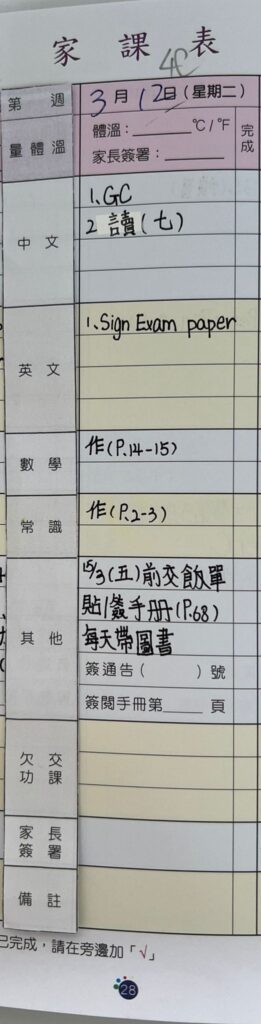 家課表
4C
第 週 3月12日(星期二)
量體溫 體溫:______°C/°F 完成
家長簽署:______
中文 1. GC
2 讀(七)
英文 1. Sign Exam paper
數學 作(P.14-15)
常識 作(P.2-3)
其他 15/3(五)前交飯單
貼/簽手册(P.68)
每天帶圖書
簽通告( )號
簽閱手冊第____頁
欠交功課
家長簽署
備註
已完成,請在旁邊加「√」
28